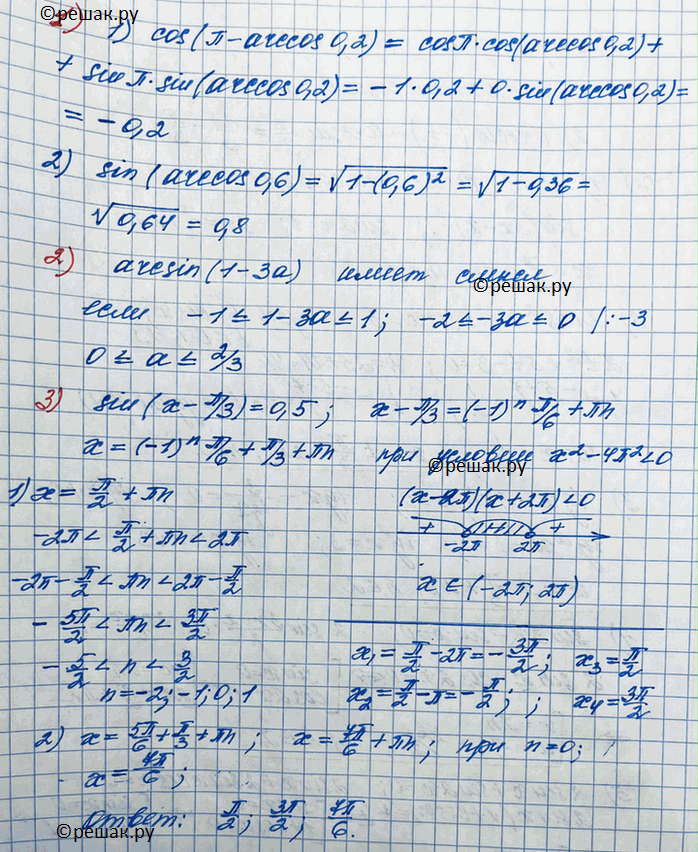 ©решак.ру
1) 1) cos(π-arccos 0,2) = cosπ·cos(arccos 0,2)+
+ sinπ·sin(arccos 0,2) = -1·0,2+0·sin(arccos 0,2)=
= -0,2
2) sin(arccos 0,6) = √(1-(0,6)²) = √(1-0,36) =
√0,64 = 0,8
2) arcsin(1-3a) имеет смысл
©решак.ру
если -1 ≤ 1-3a ≤ 1; -2 ≤ -3a ≤ 0 |:-3
0 ≤ a ≤ 2/3
3) sin(x-π/3) = 0,5; x-π/3 = (-1)ⁿ π/6 + πn
x = (-1)ⁿ π/6 + π/3 + πn при условии x²-4π²<0
©решак.ру
1) x = π/2 + πn (x-2π)(x+2π)<0
-2π < π/2 + πn < 2π + +
-2π 2π
-2π - π/2 < πn < 2π - π/2 x ∈ (-2π; 2π)
- 5π/2 < πn < 3π/2
- 5/2 < n < 3/2 x₁ = π/2 - 2π = -3π/2; x₃ = π/2
n = -2; -1; 0; 1 x₂ = π/2 - π = -π/2; ; x₄ = 3π/2
2) x = 5π/6 + π/3 + πn; x = 7π/6 + πn; при n=0;
x = 7π/6;
Ответ: π/2; 3π/2; 7π/6.
©решак.ру